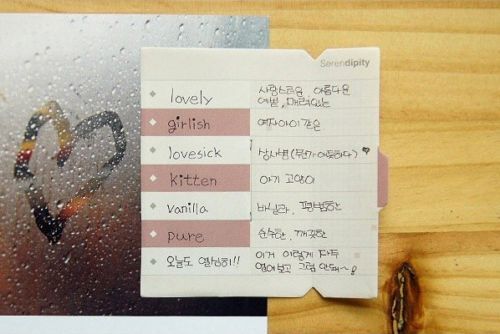 Serendipity
lovely 사랑스러운 아름다운
예쁜, 매력있는
girlish 여자아이 같은
lovesick 상사병 (뭔가 어둑하다) ♥
kitten 아기 고양이
vanilla 바닐라, 평범한
pure 순수한, 깨끗한
오늘도 열심히!! 이거 이렇게 자꾸
열어보고 그럼 안돼~